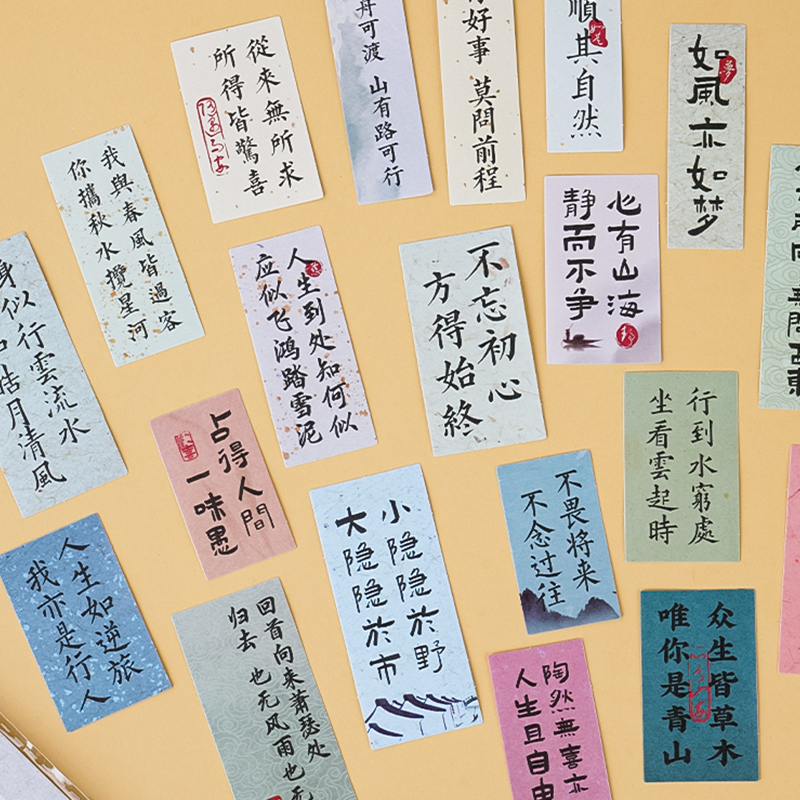 從來無所求
所得皆驚喜
舟可渡 山有路可行
好事 莫問前程
順其自然
如風亦如梦
夢
我與春風皆過客
你攜秋水攬星河
身似行雲流水
皓月清風
人生到处知何似
应似飞鸿踏雪泥
不忘初心
方得始終
心有山海
静而不争
占得人間
一味愚
小隐隐於野
大隐隐於市
不畏将来
不念过往
行到水窮處
坐看雲起時
人生如逆旅
我亦是行人
回首向来萧瑟处
归去 也无风雨也无
陶然無喜亦
人生且自由
众生皆草木
唯你是青山